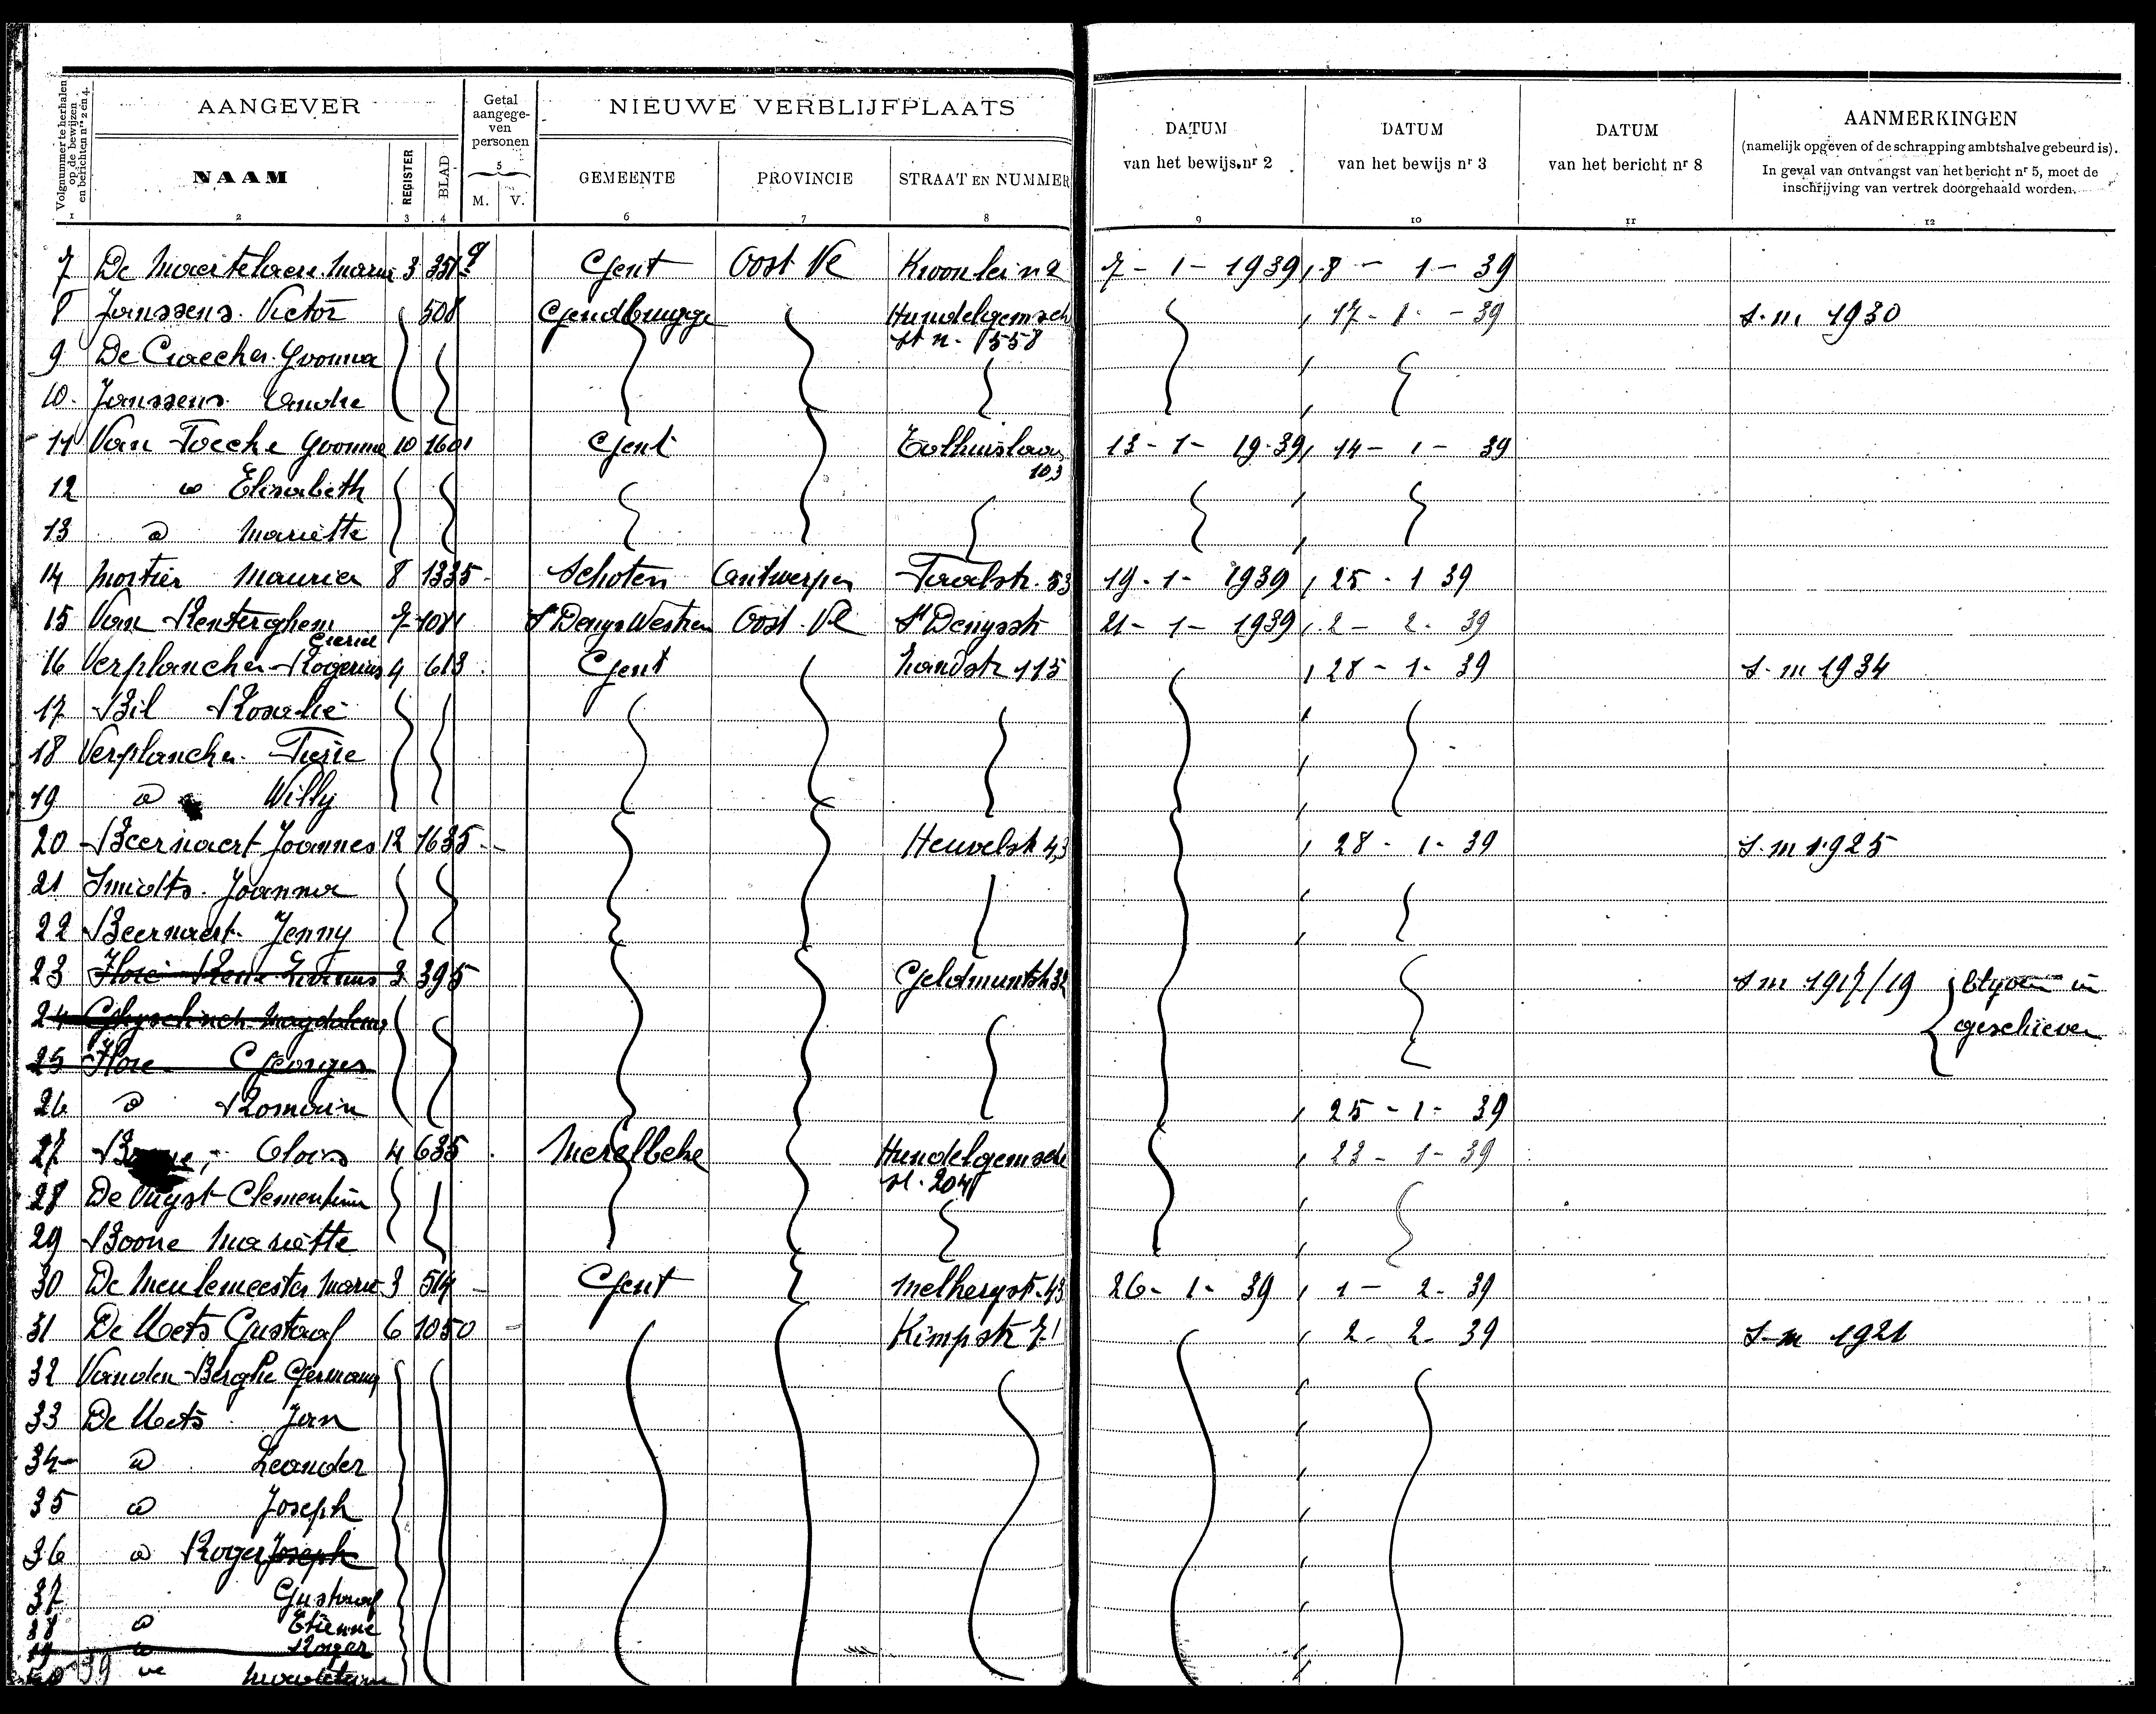 Volgnummer te herhalen op de bewijzen en berichten nrs 2 en 4.
AANGEVER
Getal aangege-ven personen
NIEUWE VERBLIJFPLAATS
DATUM van het bewijs nr 2
DATUM van het bewijs nr 3
DATUM van het bericht nr 8
AANMERKINGEN
(namelijk opgeven of de schrapping ambtshalve gebeurd is).
In geval van ontvangst van het bericht nr 5, moet de
inschrijving van vertrek doorgehaald worden.
NAAM REGISTER BLAD M. V. GEMEENTE PROVINCIE STRAAT EN NUMMER
1 2 3 4 5 6 7 8 9 10 11 12
7 De Maertelaere Maria 3 351 Gent Oost Vl 7-1-1939 8-1-39
8 Janssens Victor 508 Gendbrugge Hundelgemsch 17-1-39 s.m 1930
st n. 558
9 De Craecker Yvonna
10. Janssens Andre
11 Yvonna 10 1601 Gent Tolhuislaan 13-1-1939 14-1-39
103
12 Elisabeth
13 Mariette
14 Mortier Maurice 8 1335 Schoten Antwerpen 53 19-1-1939 25-1 39
15 Van Renterghem 7 1081 St Denys Westrem Oost Vl St Denysstr 21-1-1939 2-2-39
16 Verplancke Rogerius 4 613 Gent 115 28-1-39 S.m 1934
17 Bil Rosalie
18 Verplancke
19 Willy
20 Beernaert Joannes 12 1635 Heuvelstr 43 28-1-39 S.m 1925
21 Smidts Joanna
22 Beernaert Jenny
23 3 395 Geldmuntstr 32 Sm 1917/19 blijven in
24 Magdalena geschreven
25 Flore Georges
26 Romain 25-1-39
27 Alois 4 635 Merelbeke Hundelgemsche 23-1-39
st. 204
28 De Vuyst Clementina
29 Boone Mariette
30 De Meulemeester Marie 3 514 Gent 43 26-1-39 1-2-39
31 De Mets Gustaaf 6 1050 2-2-39 S-m 1921
32 Vanden Berghe Germana
33 De Mets Jan
34 Leander
35 Joseph
36 Roger Joseph
37 Gustaaf
38 Etienne
39 Roger
39